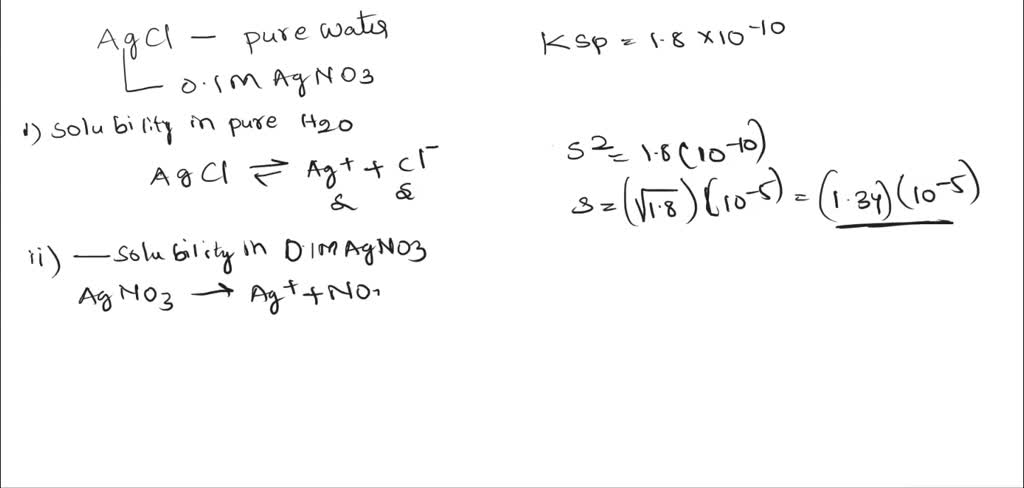 AgCl — pure water
0.1M AgNO3
Ksp = 1.8 × 10-10
i) Solubility in pure H2O
AgCl ⇌ Ag+ + Cl-
s s
S2 = 1.8 (10-10)
s = (√1.8) (10-5) = (1.34) (10-5)
ii) — Solubility in 0.1M AgNO3
AgNO3 → Ag+ + NO3